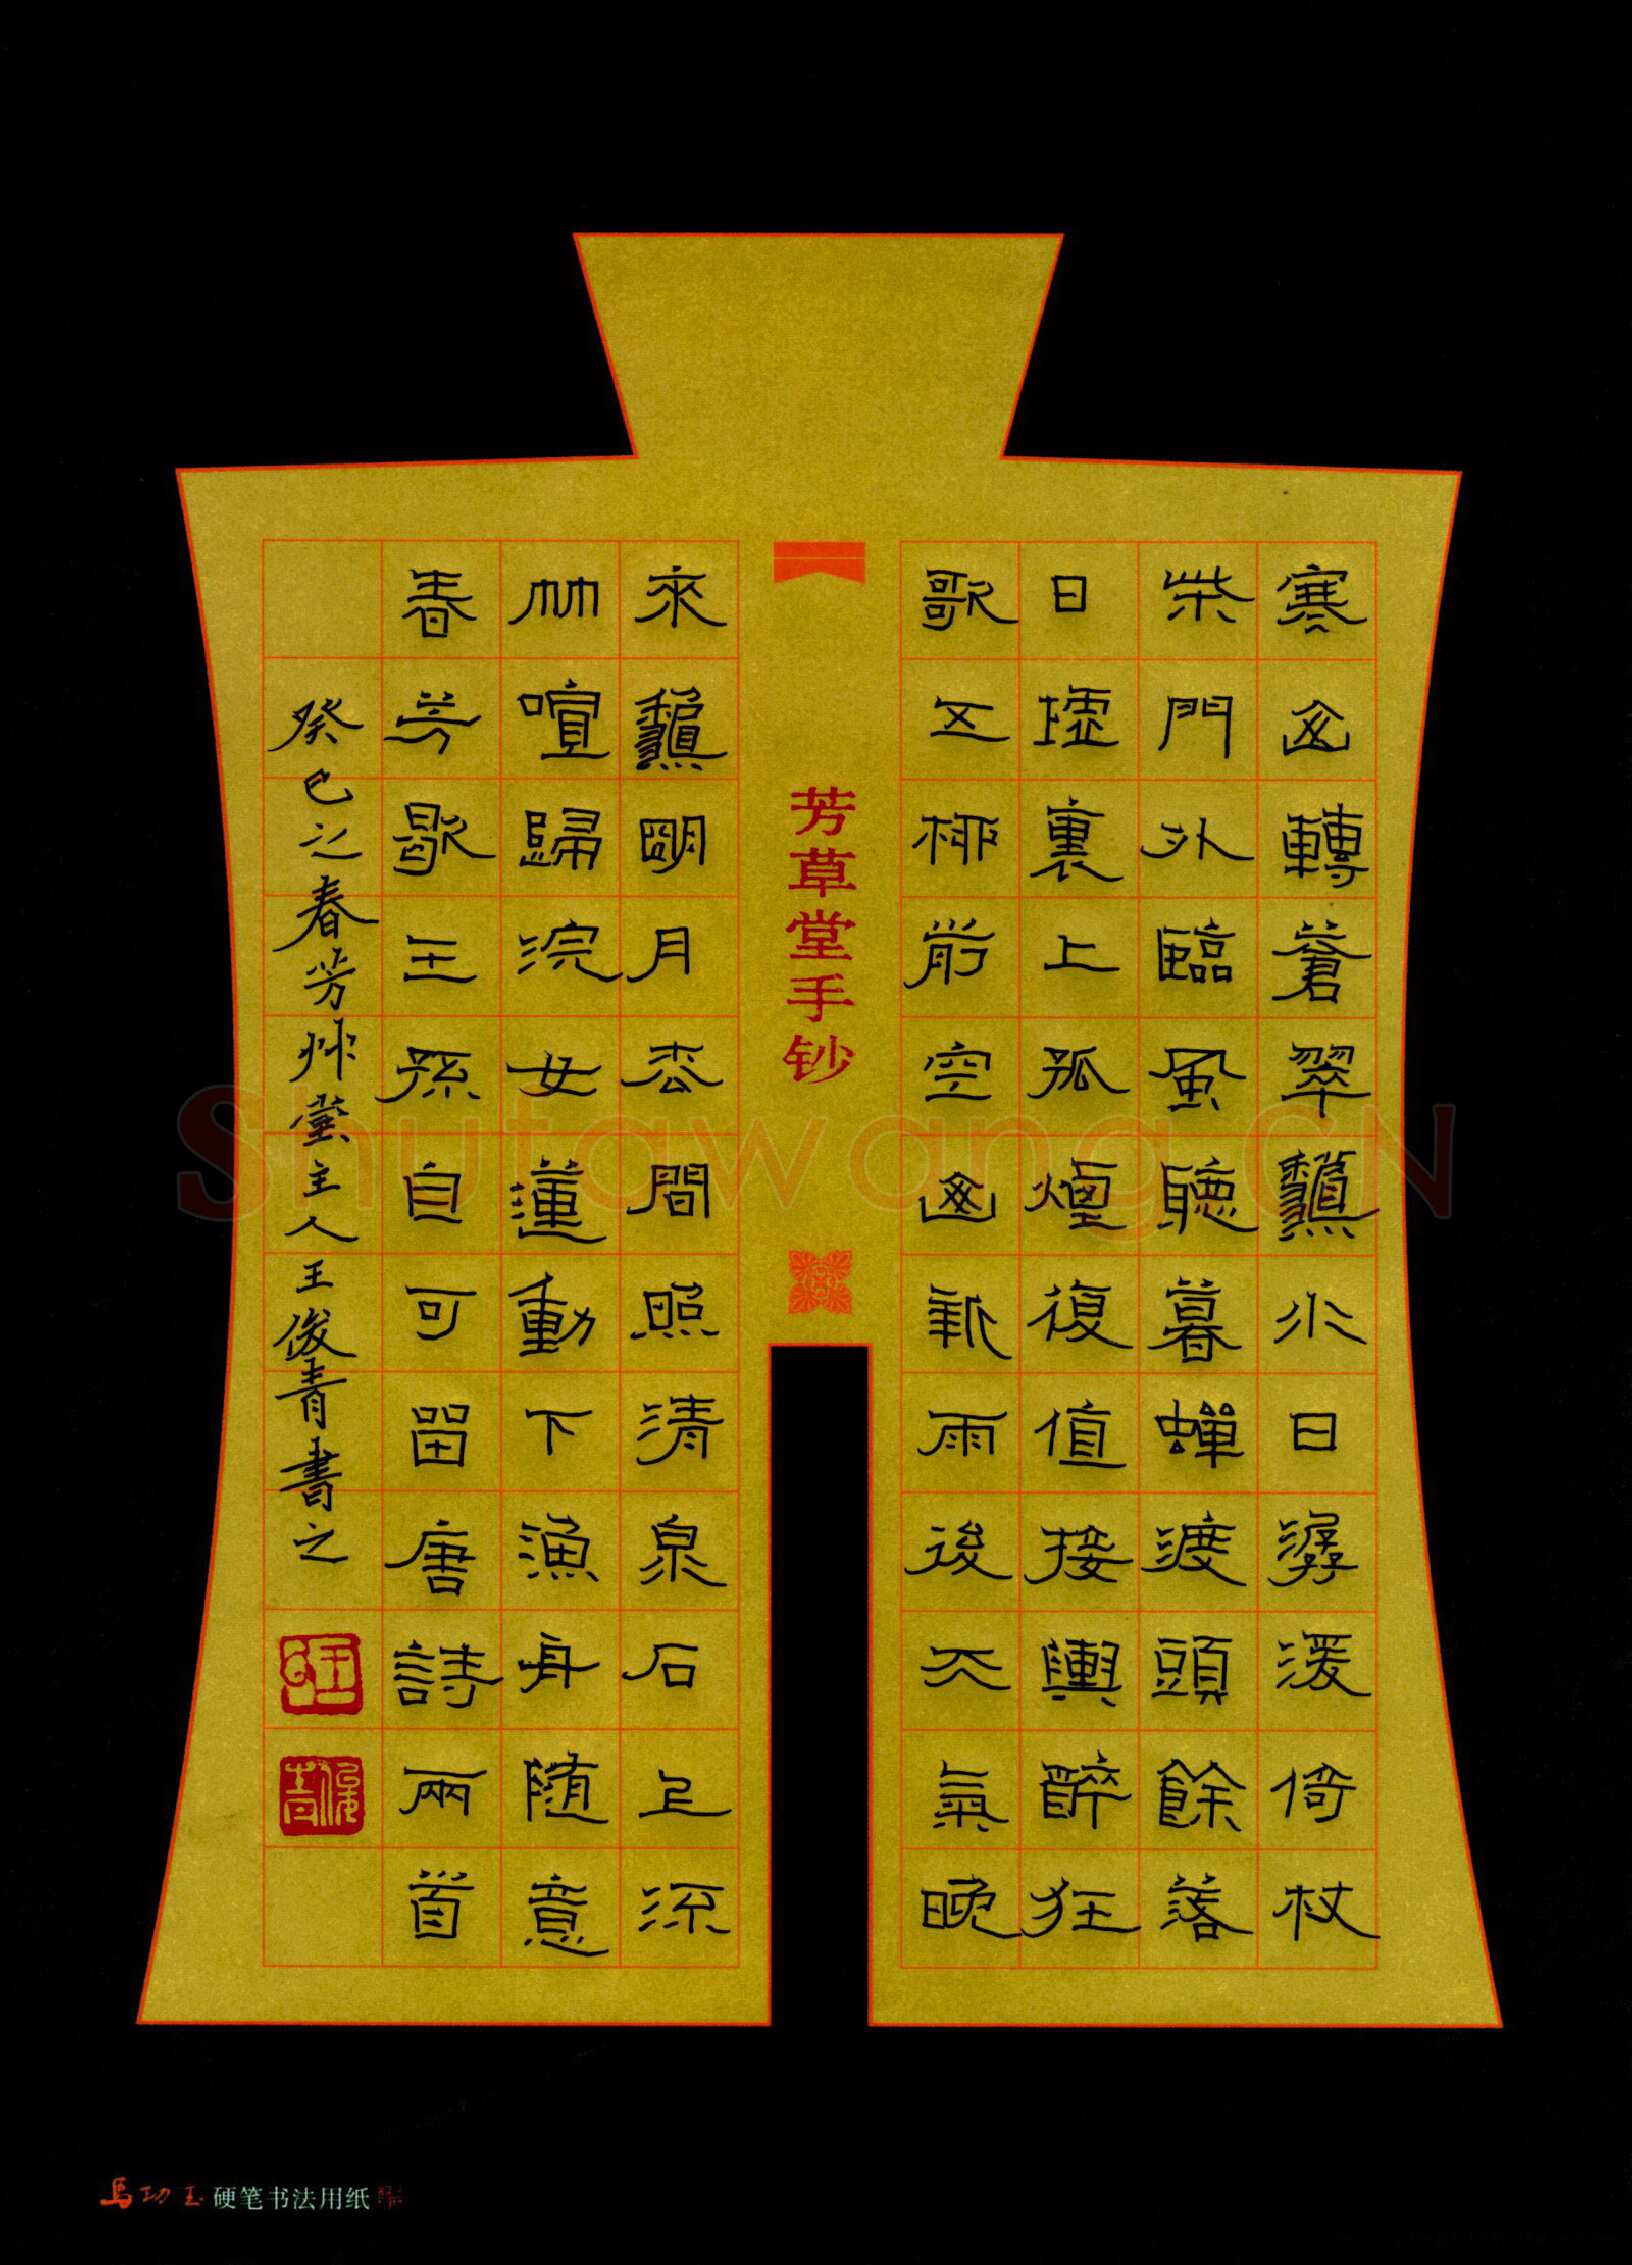 寒山轉蒼翠龝水日潺湲倚杖
柴門外臨風聽暮蟬渡頭餘落
日墟裏上孤煙復值接輿醉狂
歌五柳前空山新雨後天氣晚
芳草堂手钞
來龝明月松間照清泉石上流
竹喧歸浣女蓮動下漁舟隨意
春芳歇王孫自可留唐詩兩首
癸巳之春芳艸堂主人王俊青書之
俊青
Shutawang.CN
馬功玉 硬笔书法用纸